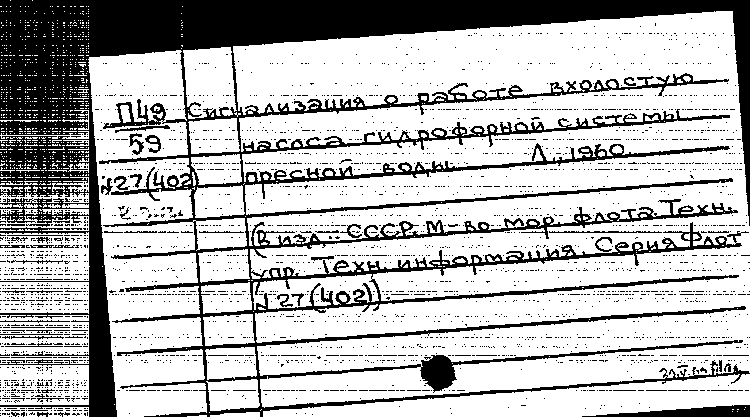 П49 Сигнализация о работе вхолостую
59 насоса гидрофорной системы
№27(402) пресной воды. Л., 1960.
(В изд.: СССР. М-во мор. флота. Техн.
упр. Техн. информация. Серия Флот
№27(402)).